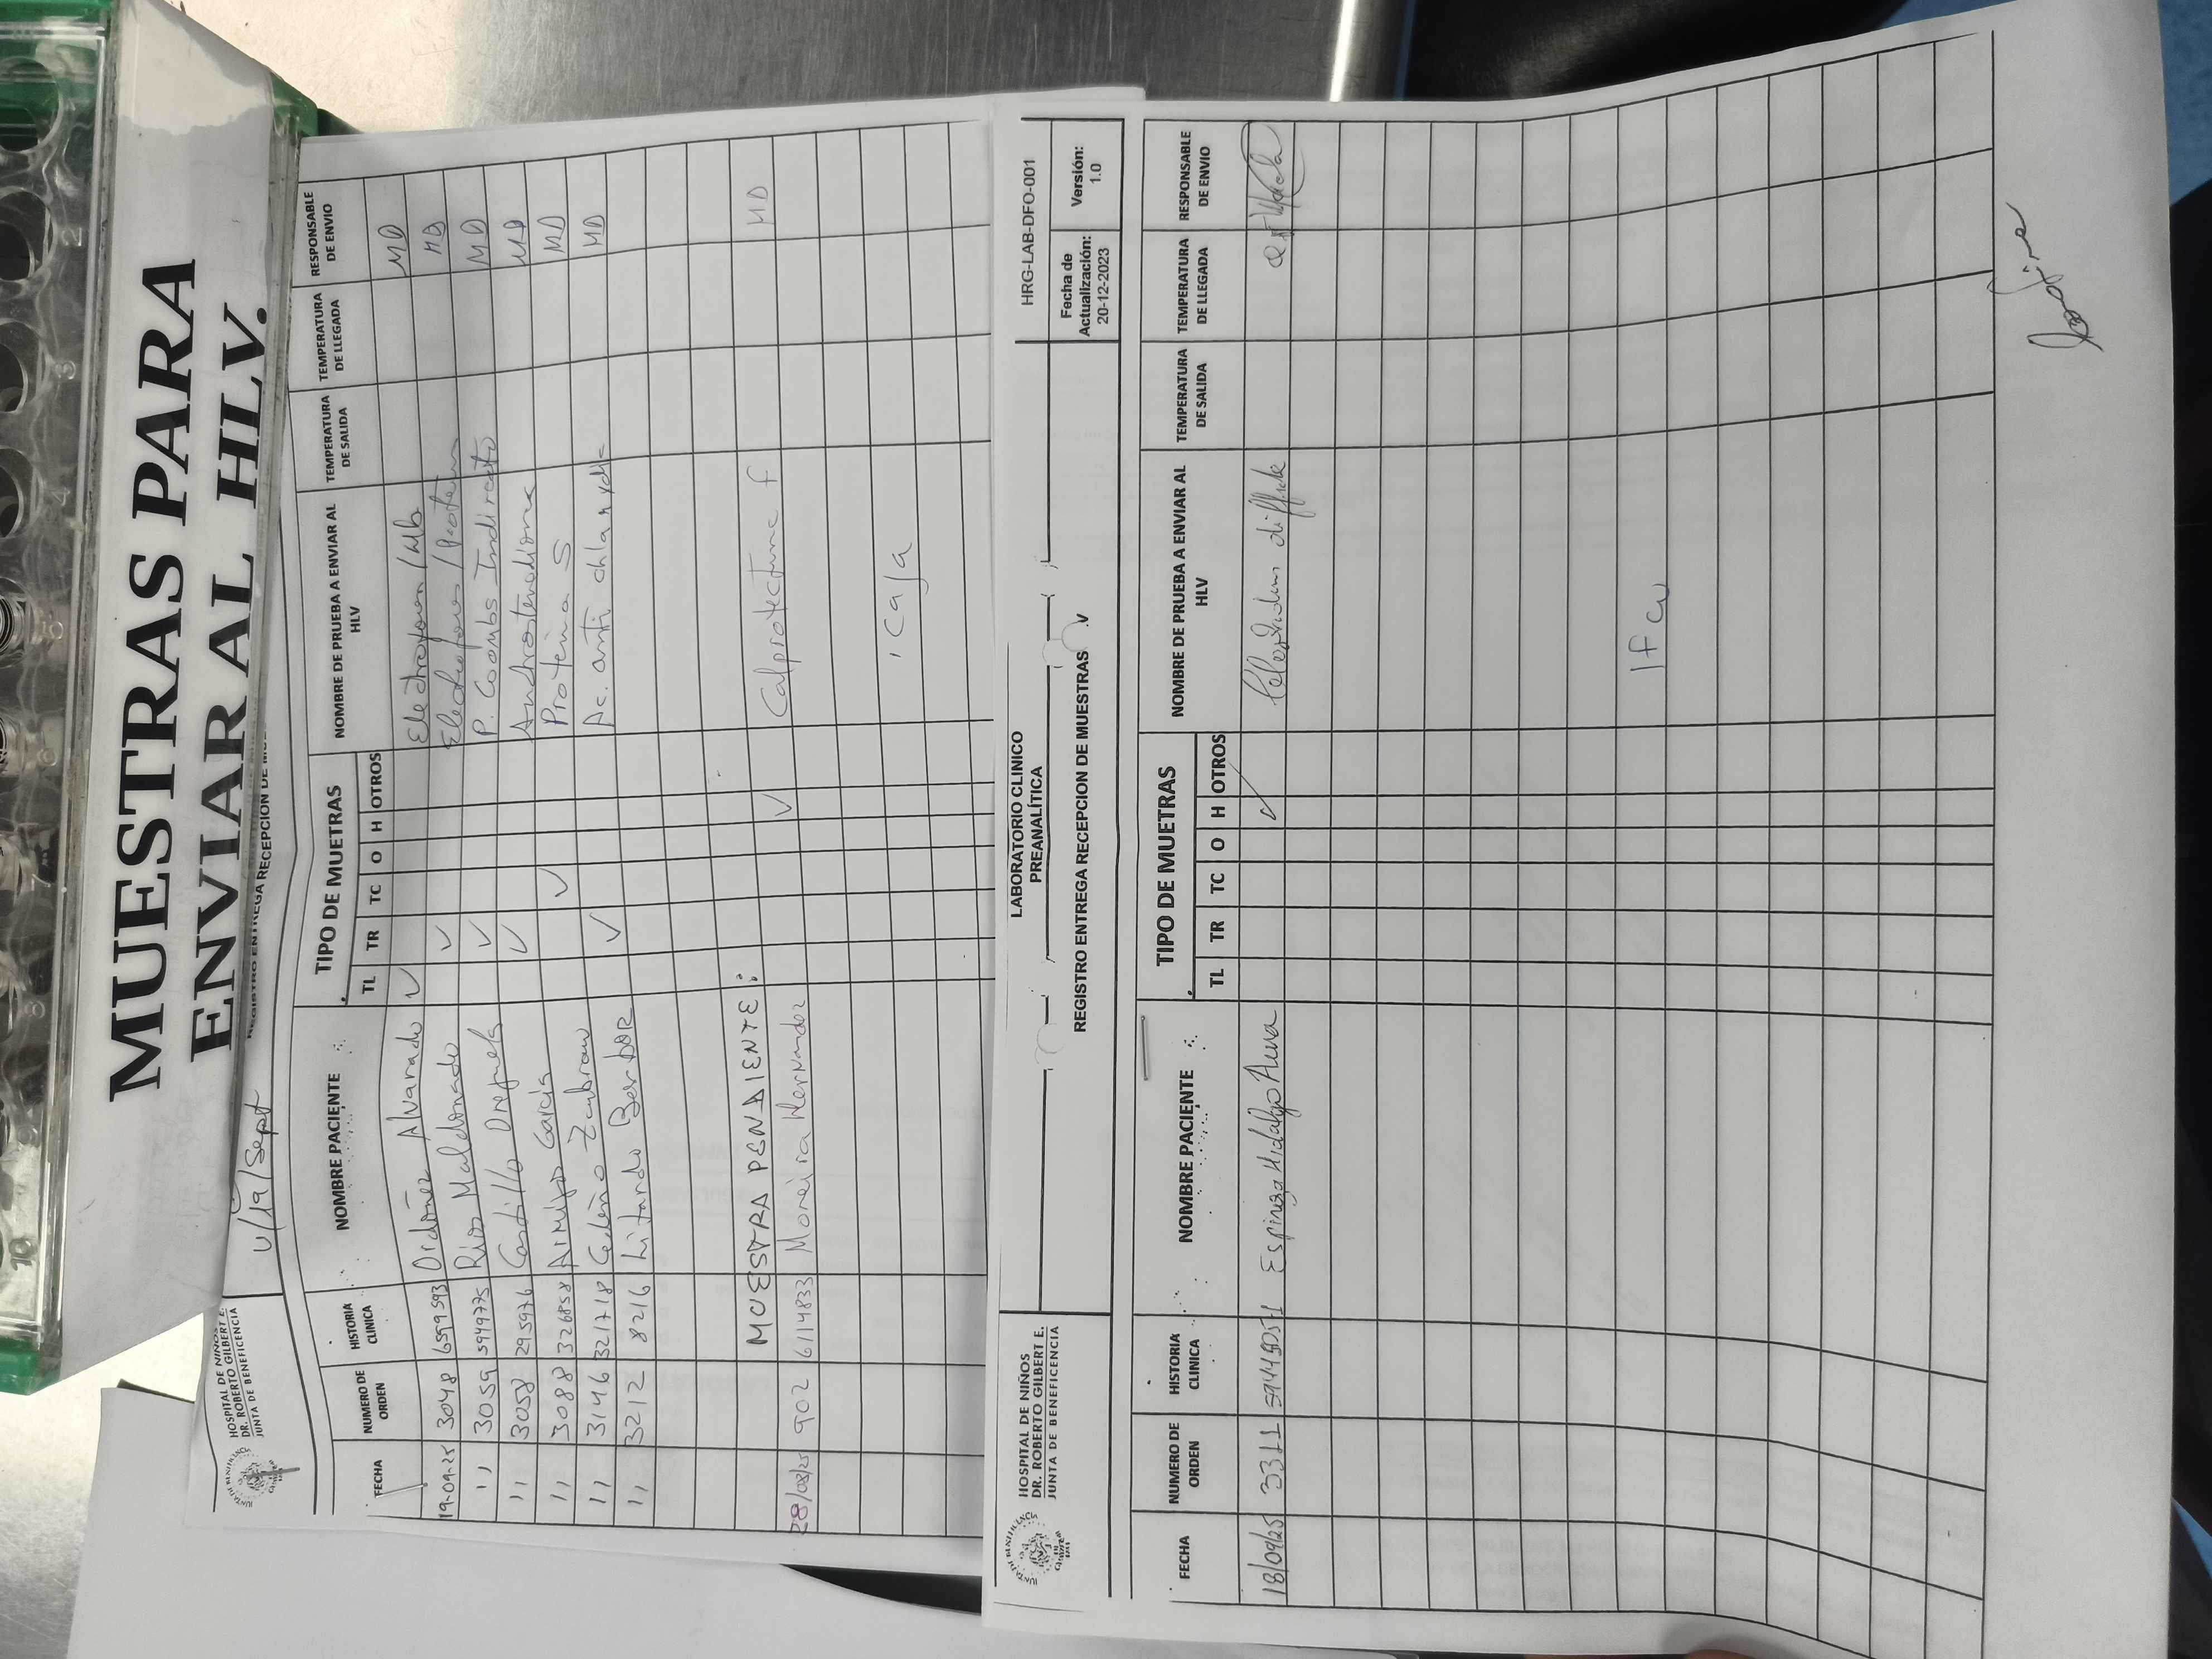 MUESTRAS PARA
ENVIAR AL HLV.
2
3
4
5
6
7
8
9
10
HOSPITAL DE NIÑOS
DR. ROBERTO GILBERT E.
JUNTA DE BENEFICENCIA
V/19/Sept
REGISTRO ENTREGA RECEPCION DE
FECHA NUMERO DE ORDEN HISTORIA CLINICA NOMBRE PACIENTE TIPO DE MUETRAS NOMBRE DE PRUEBA A ENVIAR AL HLV TEMPERATURA DE SALIDA TEMPERATURA DE LLEGADA RESPONSABLE DE ENVIO
TL TR TC O H OTROS
19-09-25 3048 6599593 Ordóñez Alvarado ✓ MD
11 3059 5949775 Ríos Maldonado ✓ MD
11 3058 295976 ✓ P. Coombs Indirecto MD
11 3088 3326858 García ✓ Androstendiona MD
11 3146 3217718 Cedeño Zambrano ✓ Proteina S MD
11 3212 8216 Litardo ✓ Ac. anti chlamydia MD
MUESTRA PENDIENTE:
28/08/25 902 6114833 Moreira Hernandez ✓ Calprotectina f MD
1 caja
HOSPITAL DE NIÑOS
DR. ROBERTO GILBERT E.
JUNTA DE BENEFICENCIA
LABORATORIO CLINICO
PREANALÍTICA
REGISTRO ENTREGA RECEPCION DE MUESTRAS V
HRG-LAB-DFO-001
Fecha de Actualización: 20-12-2023
Versión: 1.0
FECHA NUMERO DE ORDEN HISTORIA CLINICA NOMBRE PACIENTE TIPO DE MUETRAS NOMBRE DE PRUEBA A ENVIAR AL HLV TEMPERATURA DE SALIDA TEMPERATURA DE LLEGADA RESPONSABLE DE ENVIO
TL TR TC O H OTROS
18/09/25 3311 Espinoza Hidalgo ✓ difficile